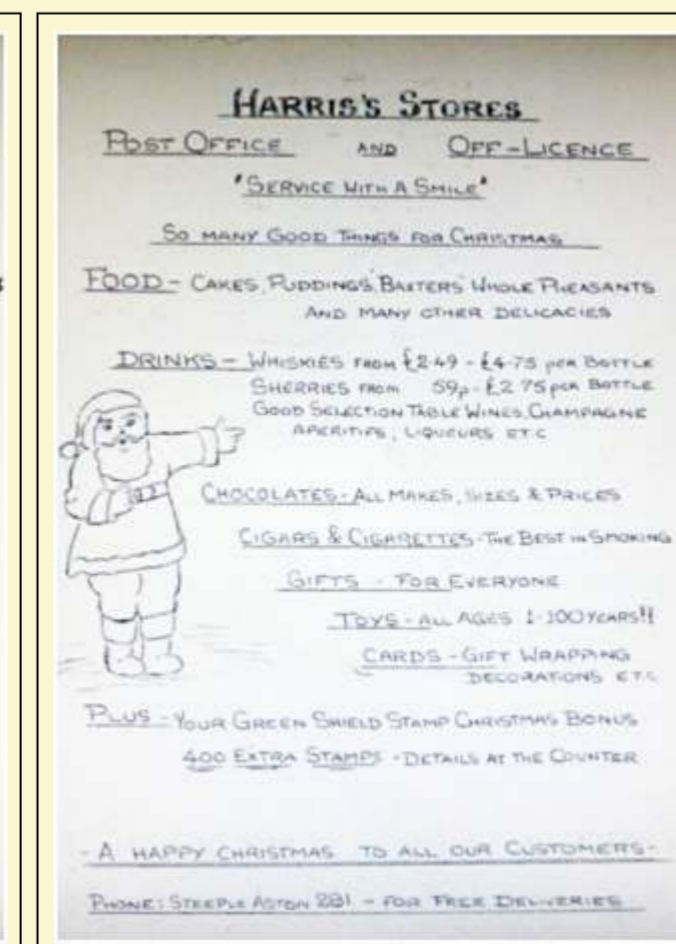 HARRIS'S STORES
POST OFFICE AND OFF-LICENCE
"SERVICE WITH A SMILE"
SO MANY GOOD THINGS FOR CHRISTMAS
FOOD - CAKES, PUDDINGS, BAXTERS WHOLE PHEASANTS
AND MANY OTHER DELICACIES
DRINKS - WHISKIES FROM £2·49 - £4·75 PER BOTTLE
SHERRIES FROM 59p - £2·75 PER BOTTLE
GOOD SELECTION TABLE WINES, CHAMPAGNE
APERITIFS, LIQUEURS ETC
CHOCOLATES - ALL MAKES, SIZES & PRICES
CIGARS & CIGARETTES - THE BEST IN SMOKING
GIFTS - FOR EVERYONE
TOYS - ALL AGES 1-100 YEARS!!
CARDS - GIFT WRAPPING
DECORATIONS ETC
PLUS - YOUR GREEN SHIELD STAMP CHRISTMAS BONUS
400 EXTRA STAMPS - DETAILS AT THE COUNTER
- A HAPPY CHRISTMAS TO ALL OUR CUSTOMERS -
PHONE: STEEPLE ASTON 281 - FOR FREE DELIVERIES